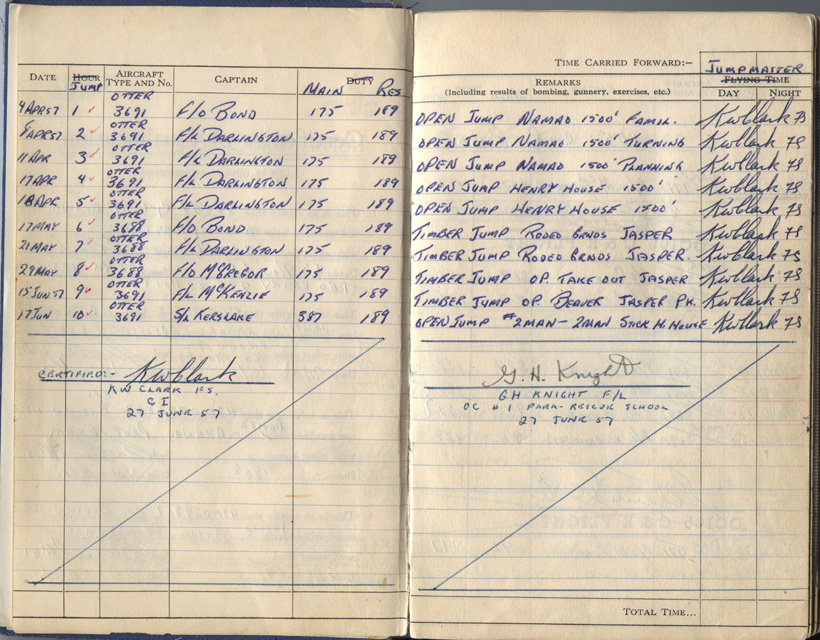 TIME CARRIED FORWARD:-
DATE HOUR JUMP AIRCRAFT TYPE AND No. CAPTAIN DUTY MAIN RES REMARKS (Including results of bombing, gunnery, exercises, etc.) JUMPMASTER FLYING TIME DAY NIGHT
4 APR 57 1 OTTER 3691 F/O BOND 175 189 OPEN JUMP NAMAO 1500' FAMIL. KWClark FS
APR 57 2 OTTER 3691 F/L DARLINGTON 175 189 OPEN JUMP NAMAO 1500' TURNING KWClark FS
11 APR 3 OTTER 3691 F/L DARLINGTON 175 189 OPEN JUMP NAMAO 1500' PLANNING KWClark FS
17 APR 4 OTTER 3691 F/L DARLINGTON 175 189 OPEN JUMP HENRY HOUSE 1500' KWClark FS
18 APR 5 OTTER 3691 F/L DARLINGTON 175 189 OPEN JUMP HENRY HOUSE 1500' KWClark FS
17 MAY 6 OTTER 3688 F/O BOND 175 189 TIMBER JUMP RODEO GRNDS JASPER KWClark FS
21 MAY 7 OTTER 3688 F/L DARLINGTON 175 189 TIMBER JUMP RODEO GRNDS JASPER. KWClark FS
29 MAY 8 OTTER 3688 F/O McGREGOR 175 189 TIMBER JUMP OP. TAKE OUT JASPER KWClark FS
15 JUN 57 9 OTTER 3691 F/L McKENZIE 175 189 TIMBER JUMP OP. BEAVER JASPER PK. KWClark FS
17 JUN 10 OTTER 3691 S/L KERSLAKE 387 189 OPEN JUMP #2 MAN - 2 MAN STICK H. HOUSE KWClark FS
CERTIFIED:- KWClark
KW CLARK FS.
CI
27 JUNE 57
G. H. Knight
GH KNIGHT F/L
OC #1 PARA-RESCUE SCHOOL
27 JUNE 57
TOTAL TIME...